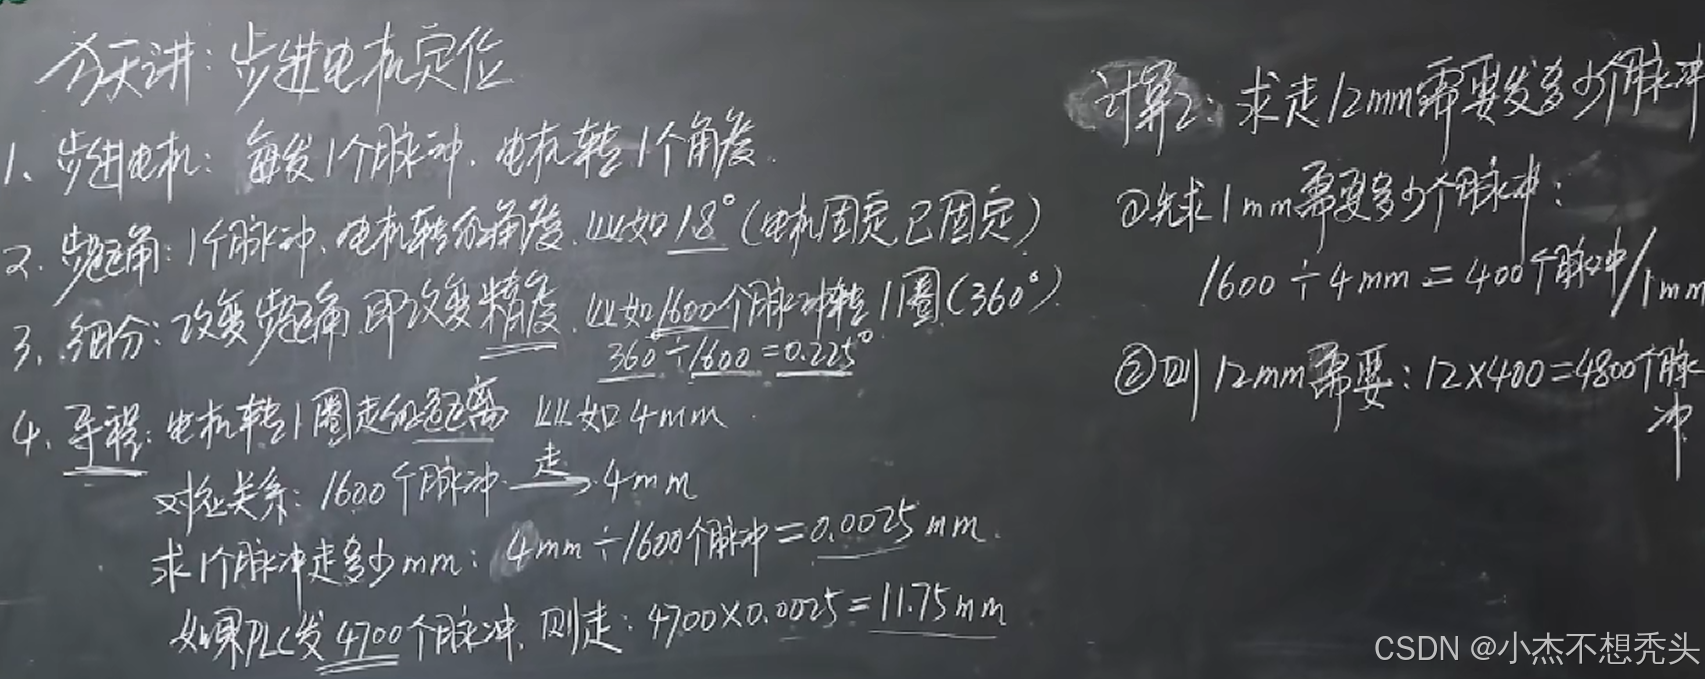 今天讲：步进电机定位
1、步进电机：每发1个脉冲，电机转1个角度．
2．步距角：1个脉冲，电机转的角度，比如1.8°（电机固定已固定）
3，细分：改变步距角，即改变精度，比如1600个脉冲转1圈（360°）．
360°÷1600=0.225°
4．导程：电机转1圈走的距离 比如4mm．
对应关系：1600个脉冲 走→ 4mm
求1个脉冲走多少mm：4mm÷1600个脉冲=0.0025mm．
如果PLC发4700个脉冲，则走：4700×0.0025=11.75mm
计算2：求走12mm需要发多少个脉冲
①先求1mm需要多少个脉冲：
1600÷4mm=400个脉冲/1mm
②则12mm需要：12×400=4800个脉
冲
CSDN @小杰不想秃头